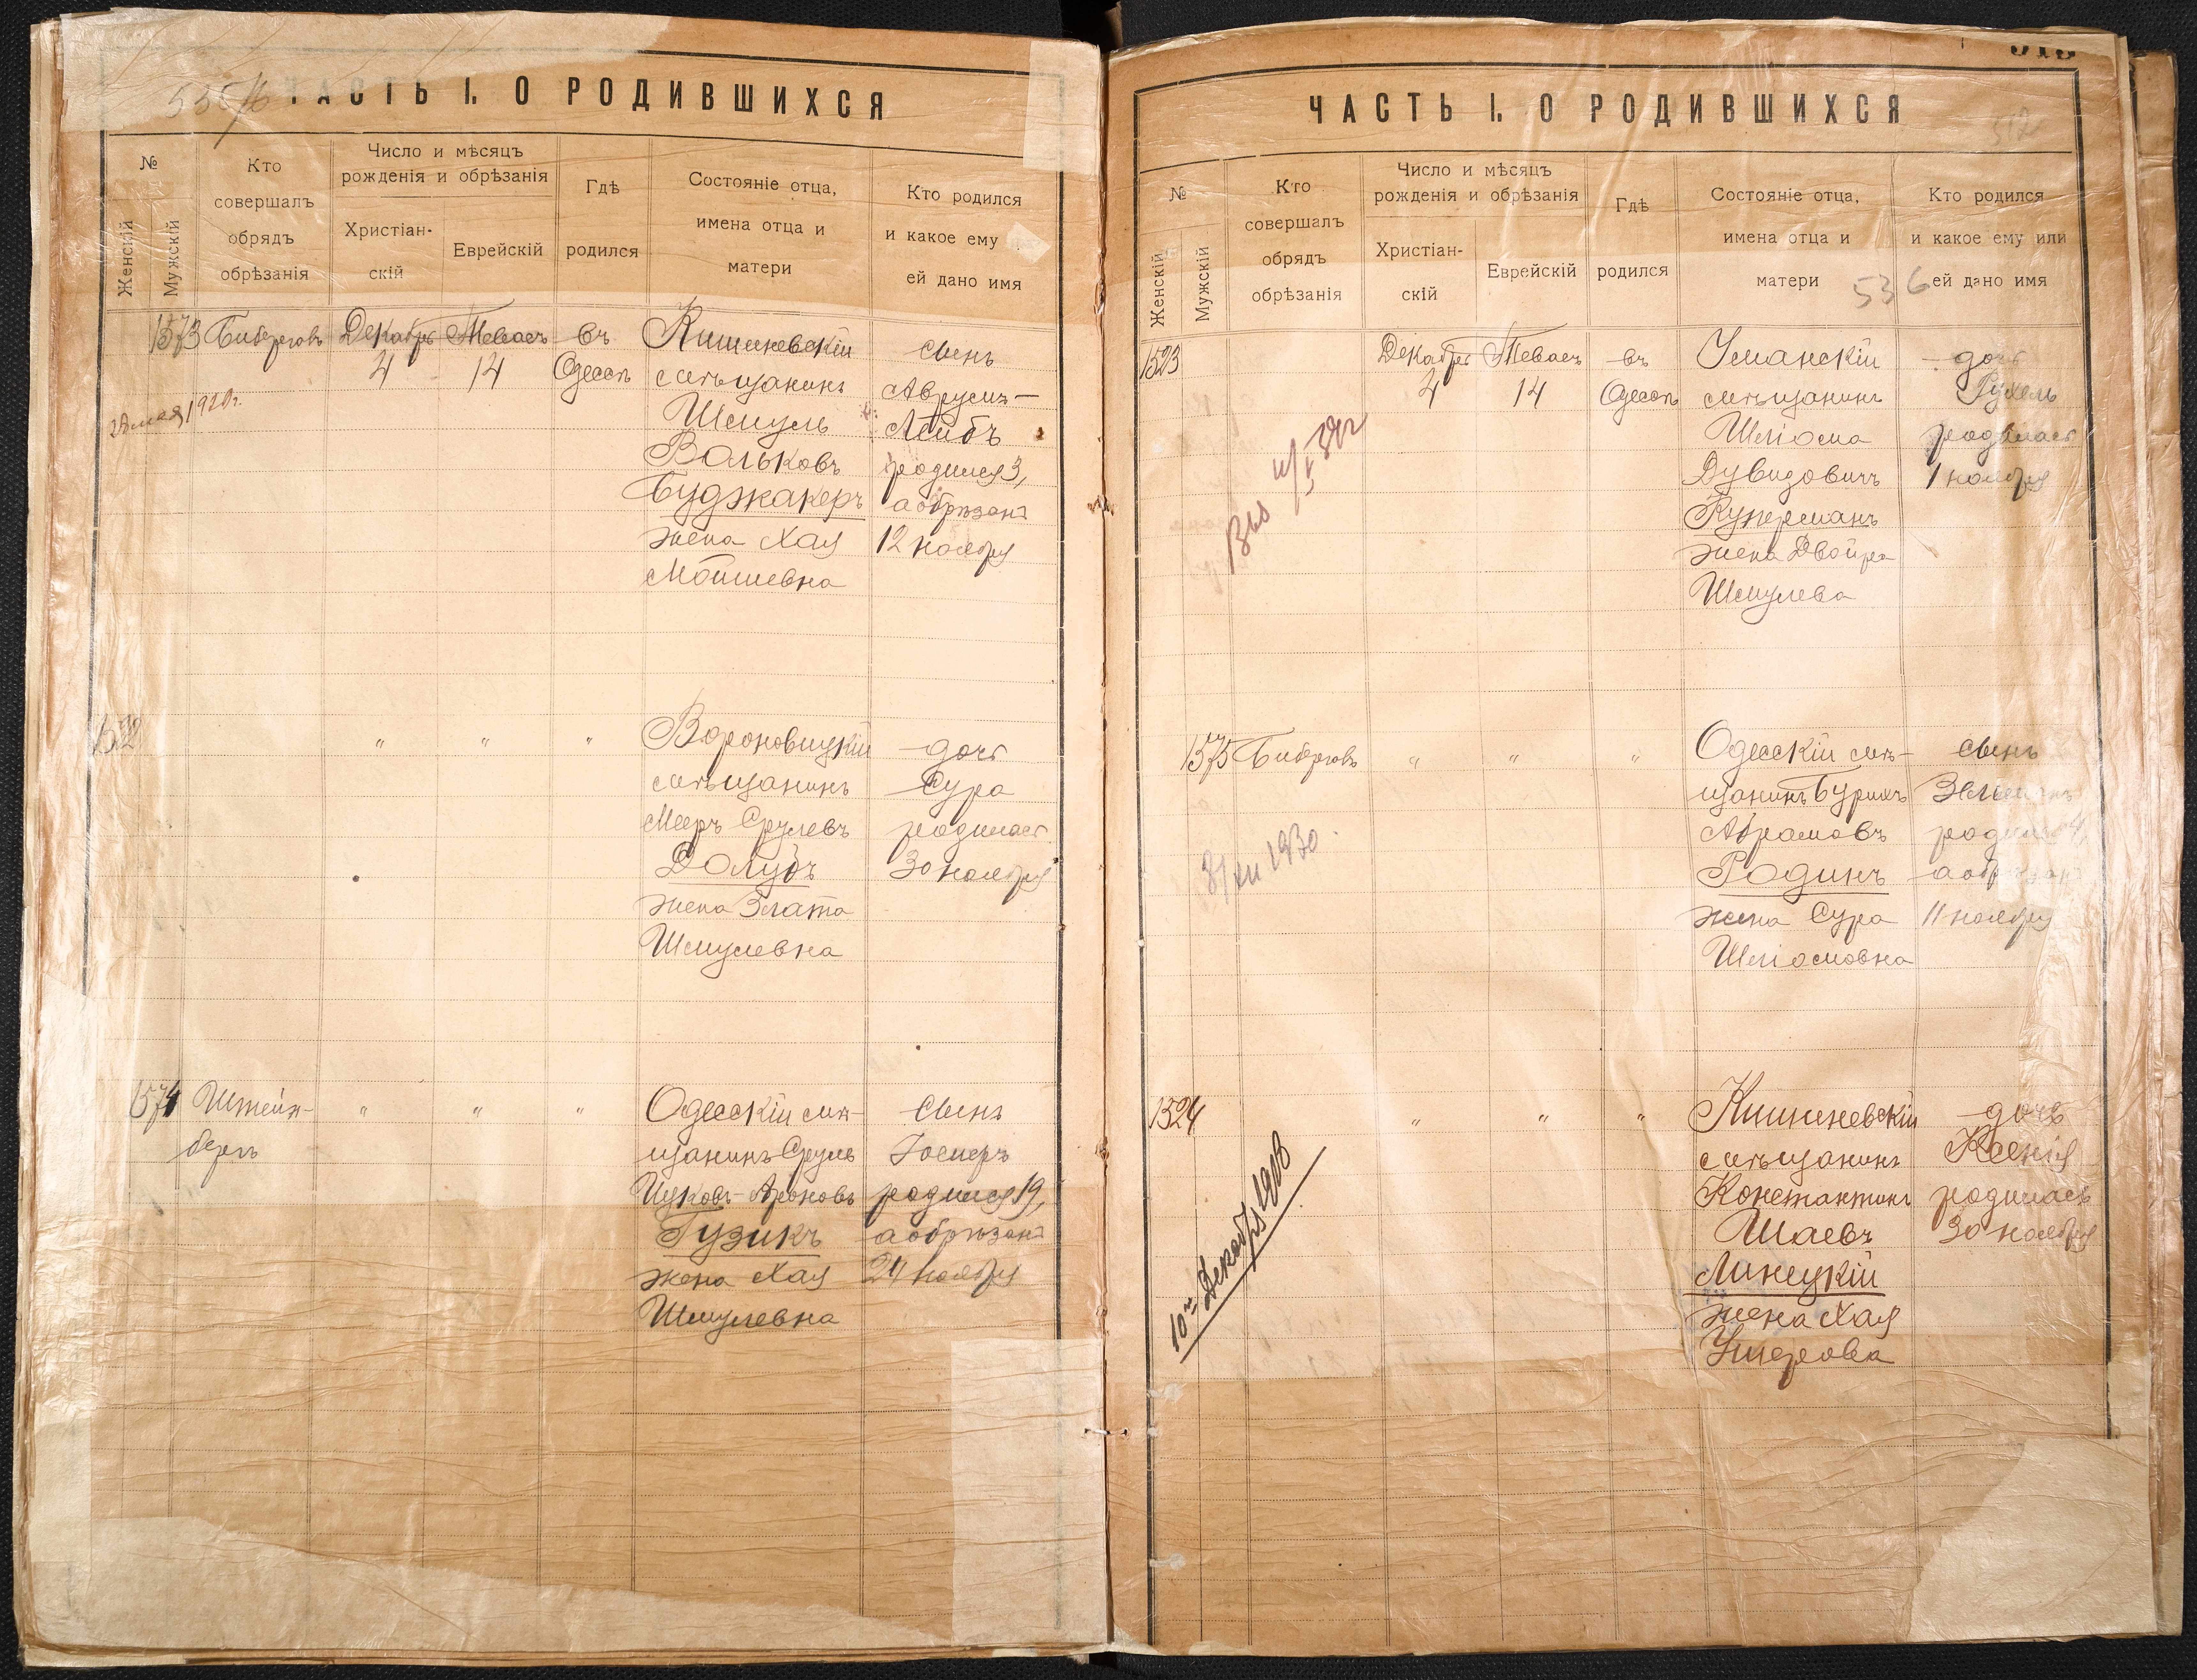 ЧАСТЬ I. О РОДИВШИХСЯ
№
Женскій
Мужскій
Кто
совершалъ
обрядъ
обрѣзанія
Число и мѣсяцъ
рожденія и обрѣзанія
Христіан-
скій
Еврейскій
Гдѣ
родился
Состояніе отца,
имена отца и
матери
Кто родился
и какое ему
ей дано имя
1573
Биберговъ
Декабрь
4
Теваеъ
14
въ
Одессѣ
Кишиневскій
мѣщанинъ
Шмуль
Вольковъ
Буджакеръ
жена Хая
Мойшевна
сынъ
Аврумъ-
Лейбъ
родился 3,
а обрѣзанъ
12 ноября
"
"
"
Вороновицкій
мѣщанинъ
Мееръ Срулевъ
Долубъ
жена Злата
Шмулевна
дочь
Сура
родилась
30 ноября
1574
Штейн-
бергъ
"
"
"
Одесскій мѣ-
щанинъ Сруль
Ицковъ-Ароновъ
Гузикъ
жена Хая
Шмулевна
сынъ
Іосперъ
родился 19,
а обрѣзанъ
24 ноября
ЧАСТЬ I. О РОДИВШИХСЯ
512
№
Женскій
Мужскій
Кто
совершалъ
обрядъ
обрѣзанія
Число и мѣсяцъ
рожденія и обрѣзанія
Христіан-
скій
Еврейскій
Гдѣ
родился
Состояніе отца,
имена отца и
матери
536
Кто родился
и какое ему или
ей дано имя
1523
Декабрь
4
Теваеъ
14
въ
Одессѣ
Уманскій
мѣщанинъ
Шліома
Дувидовичъ
Куперманъ
жена Двойра
Шмулева
дочь
Рухель
родилась
1 ноября
1575
Биберговъ
"
"
"
Одесскій мѣ-
щанинъ Бурихъ
Абрамовъ
Родинъ
жена Сура
Шліомовна
сынъ
родился 4,
а обрѣзанъ
11 ноября
31/XII 1930
1524
"
"
"
Кишиневскій
мѣщанинъ
Константинъ
Шаевъ
Линецкій
жена Хая
Ушерова
дочь
Ксенія
родилась
30 ноября
10го Декабря 1908